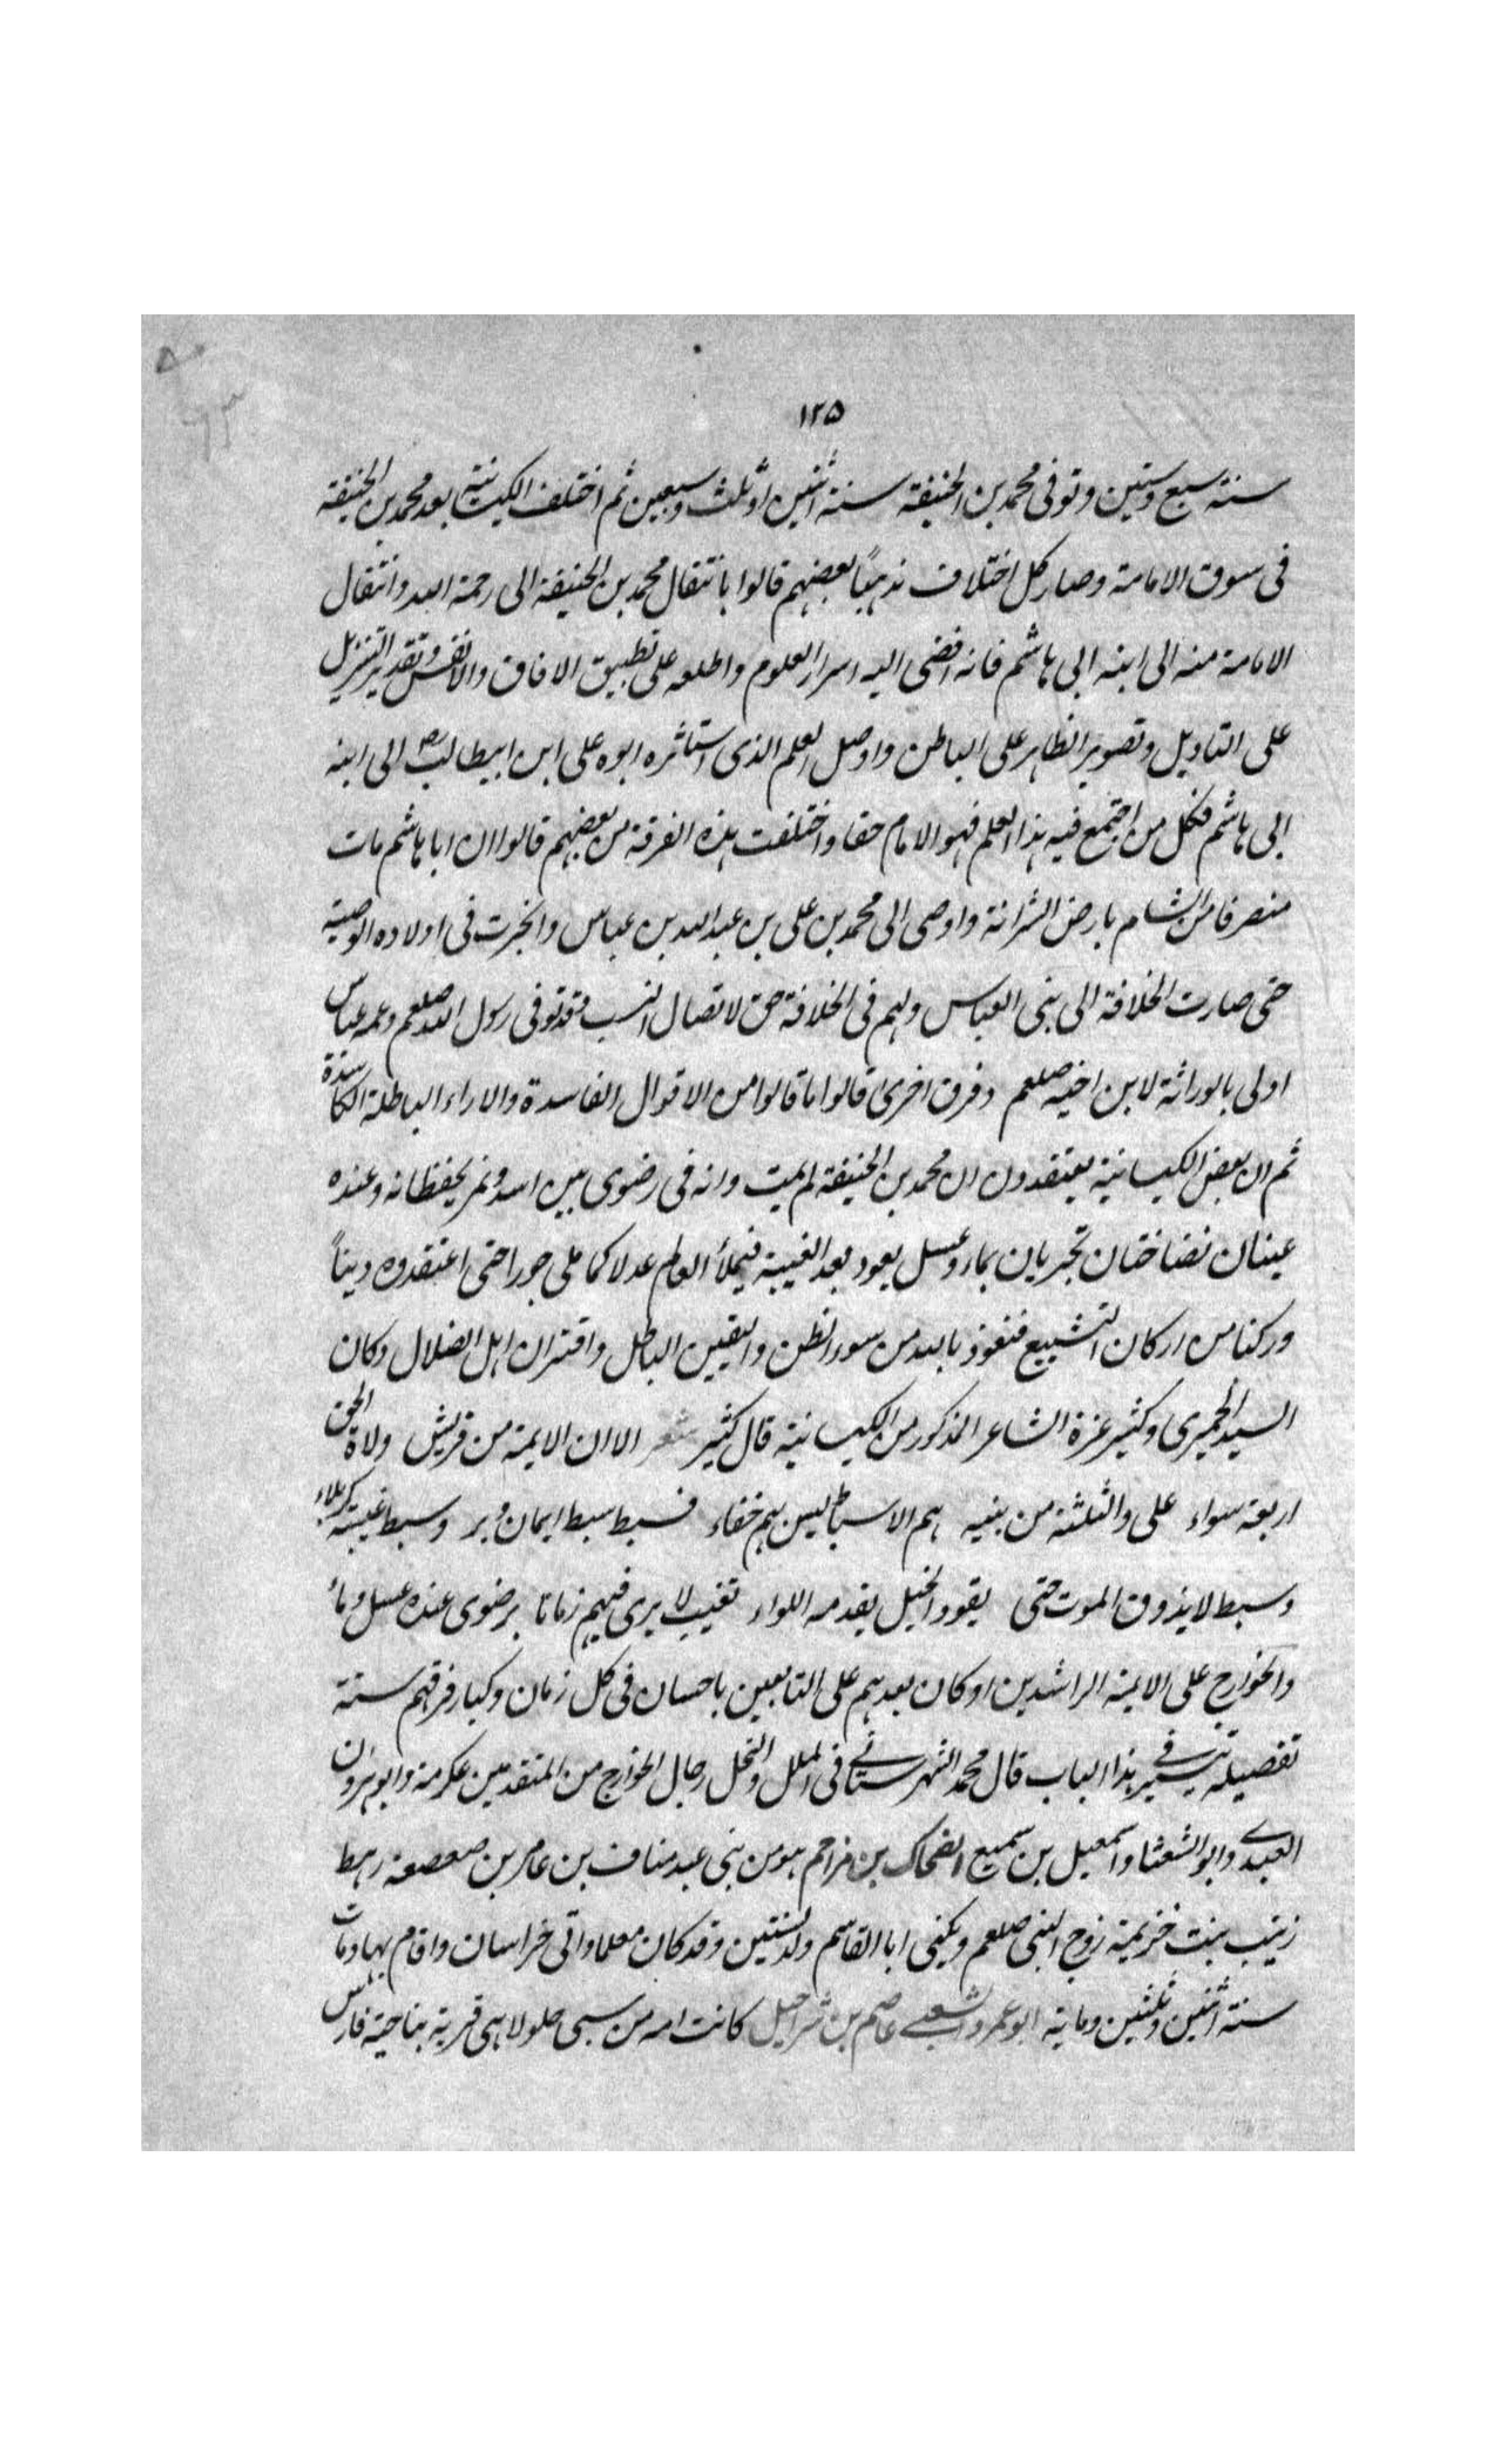 ١٢٥
سنة سبع وستين وتوفى محمد بن الحنيفة سنة اثنين او ثلث وسبعين ثم اختلف الكيسانية بعد محمد بن الحنيفة
فى سوق الامامة وصار كل اختلاف مذهبًا بعضهم قالوا بانتقال محمد بن الحنيفة الى رحمة الله وانتقال
الامامة منه الى ابنه ابى هاشم فانه افضى اليه اسرار العلوم واطلعه على تطبيق الافاق والانفس وتقدير التنزيل
على التاويل وتصوير الظاهر على الباطن واوصل العلم الذى استاثره ابوه على ابن ابيطالب الى ابنه
ابى هاشم فكل من اجتمع فيه هذا العلم فهو الامام حقا واختلفت هذه الفرقة من بعضهم قالوا ان ابا هاشم مات
منصرفا من الشام بارض الشراة واوصى الى محمد بن على بن عبد الله بن عباس وانجرت فى اولاده الوصية
حتى صارت الخلافة الى بنى العباس ولهم فى الخلافة حق لاتصال النسب فقد توفى رسول الله صلعم وعمه عباس
اولى بالوراثة لابن اخيه صلعم وفرق اخرى قالوا ما قالوا من الاقوال الفاسدة والاراء الباطلة الكاسدة
ثم ان بعض الكيسانية يعتقدون ان محمد بن الحنيفة لم يمت وانه فى رضوى بين اسد ونمر يحفظانه وعنده
عينان نضاختان تجريان بماء وعسل يعود بعد الغيبة فيملأ العالم عدلا كما ملى جورا حتى اعتقدوه دينًا
وركنا من اركان التشيع فنعوذ بالله من سوء الظن واليقين الباطل واقتران اهل الضلال وكان
السيد الحميرى وكثير عزة الشاعر المذكور من الكيسانية قال كثير شعر الا ان الايمة من قريش ولاة الحق
اربعة سواء على والثلثة من بنيه هم الاسباط ليس بهم خفاء فسبط سبط ايمان وبر وسبط غيبته كربلاء
وسبط لا يذوق الموت حتى يقود الخيل يقدمه اللواء تغيب لا يرى فيهم زمانا برضوى عنده عسل وماء
والخوارج على الايمة الراشدين او كان بعدهم على التابعين باحسان فى كل زمان وكبار فرقهم ستة
تفصيله فى هذا الباب قال محمد الشهرستانى فى الملل والنحل رجال الخوارج من المتقدمين عكرمة وابو هرون
العبدى وابو الشعثا واسمعيل بن سميع الضحاك بن مزاحم هو من بنى عبد مناف بن عامر بن صعصعة رهط
زينب بنت خزيمة زوج النبى صلعم ويكنى ابا القاسم ولد لسنتين وقد كان معلما واتى خراسان واقام بها ومات
سنة اثنين وثلثين وماية ابو عمرو الشعبى عاصم بن شراحيل كانت امه من سبى جلولا هى قرية بناحية فارس